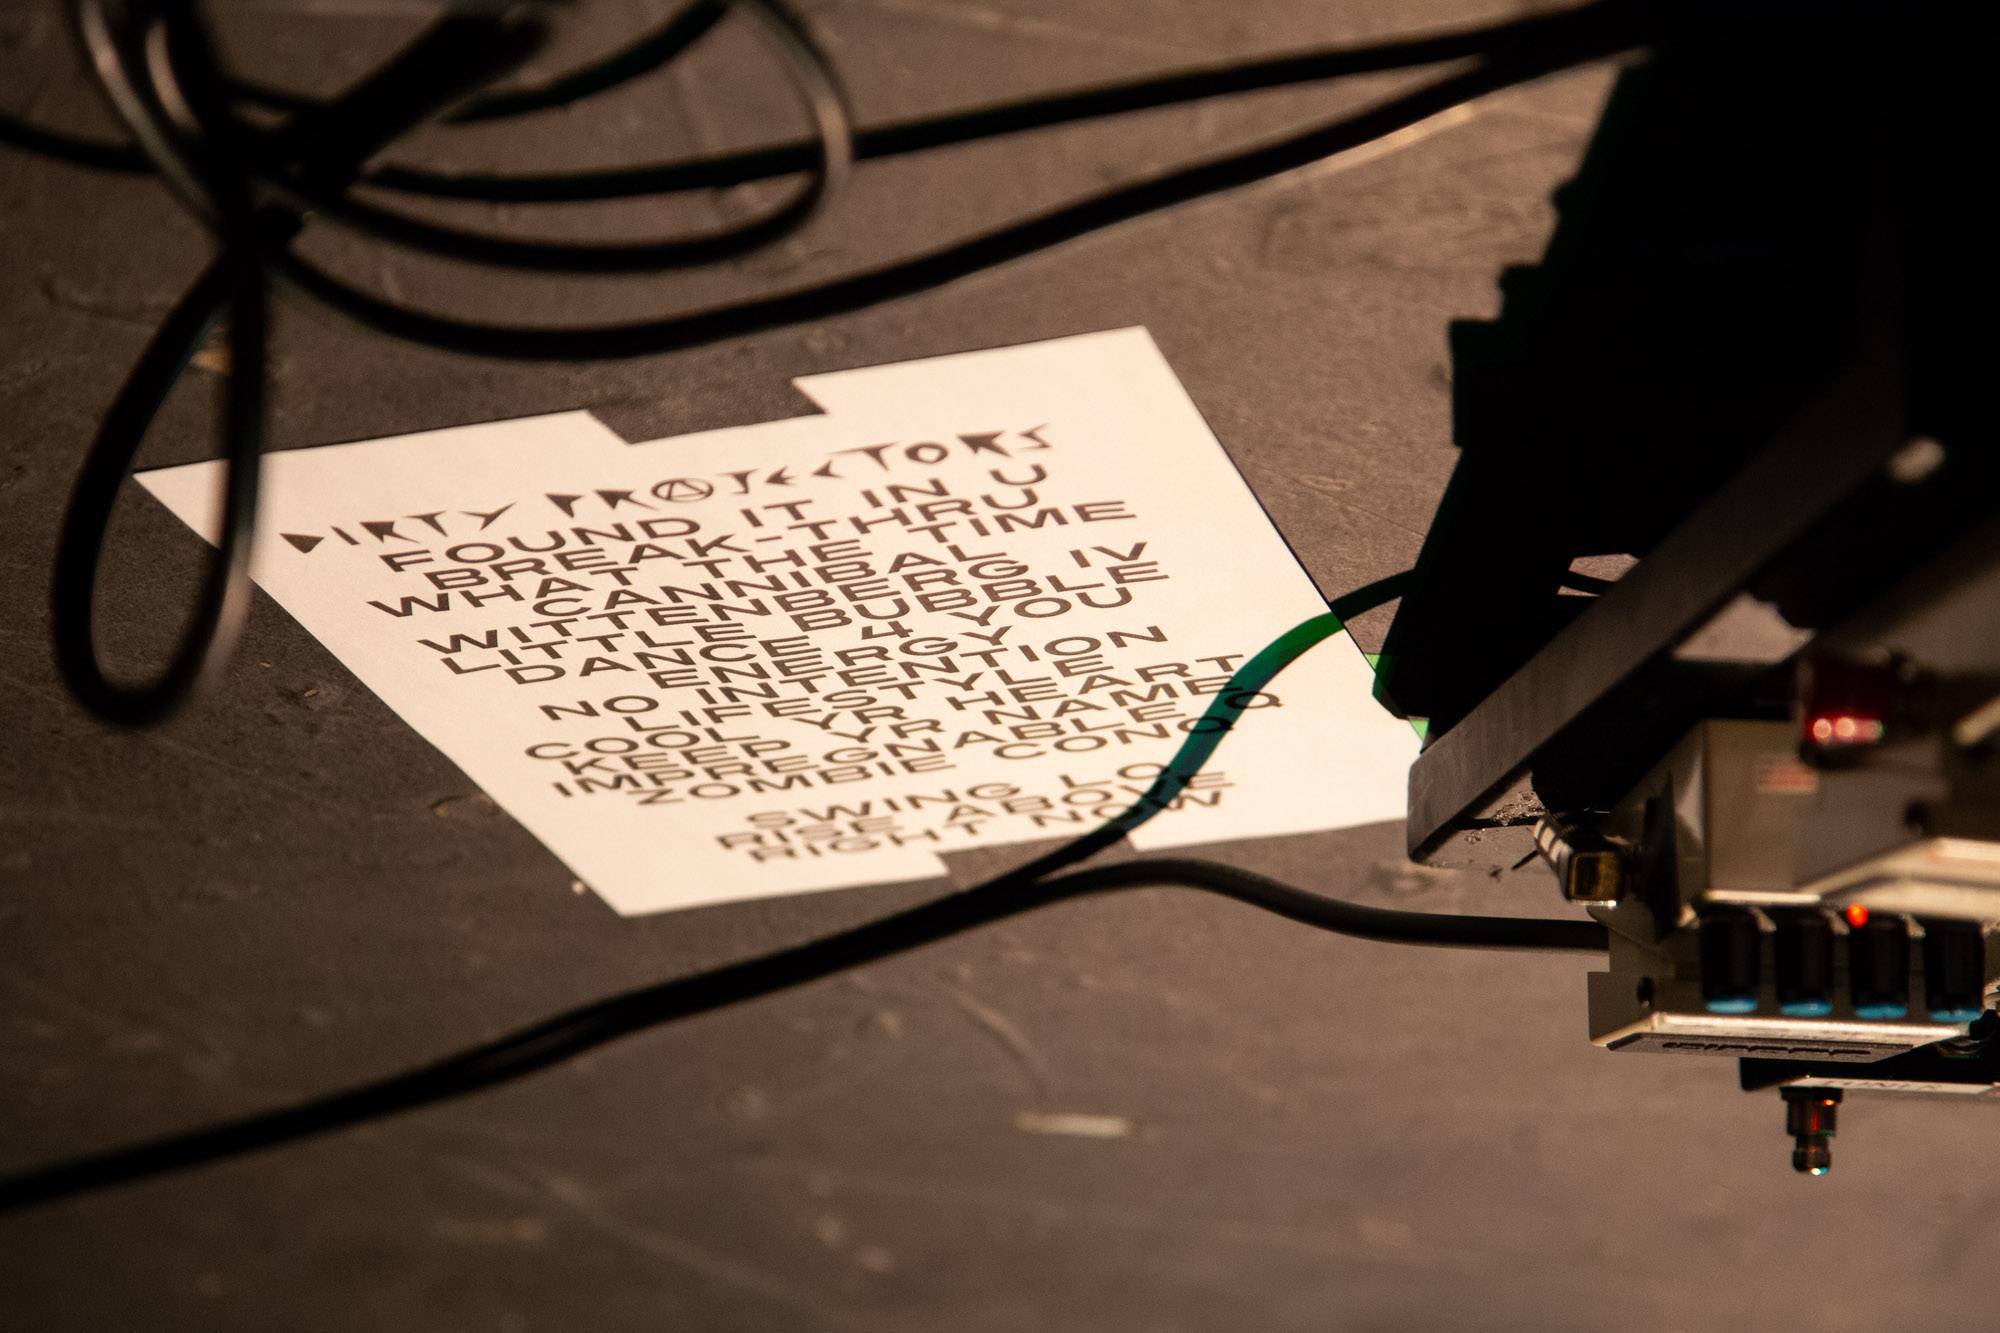 DIRTY PROJECTORS
FOUND IT IN U
BREAK-THRU
WHAT THE TIME
CANNIBAL
WITTENBERG IV
LITTLE BUBBLE
DANCE 4 YOU
ENERGY
NO INTENTION
LIFESTYLE
COOL YR HEART
KEEP YR NAME
IMPREGNABLE Q
ZOMBIE CONQ
SWING LO
RISE ABOVE
RIGHT NOW